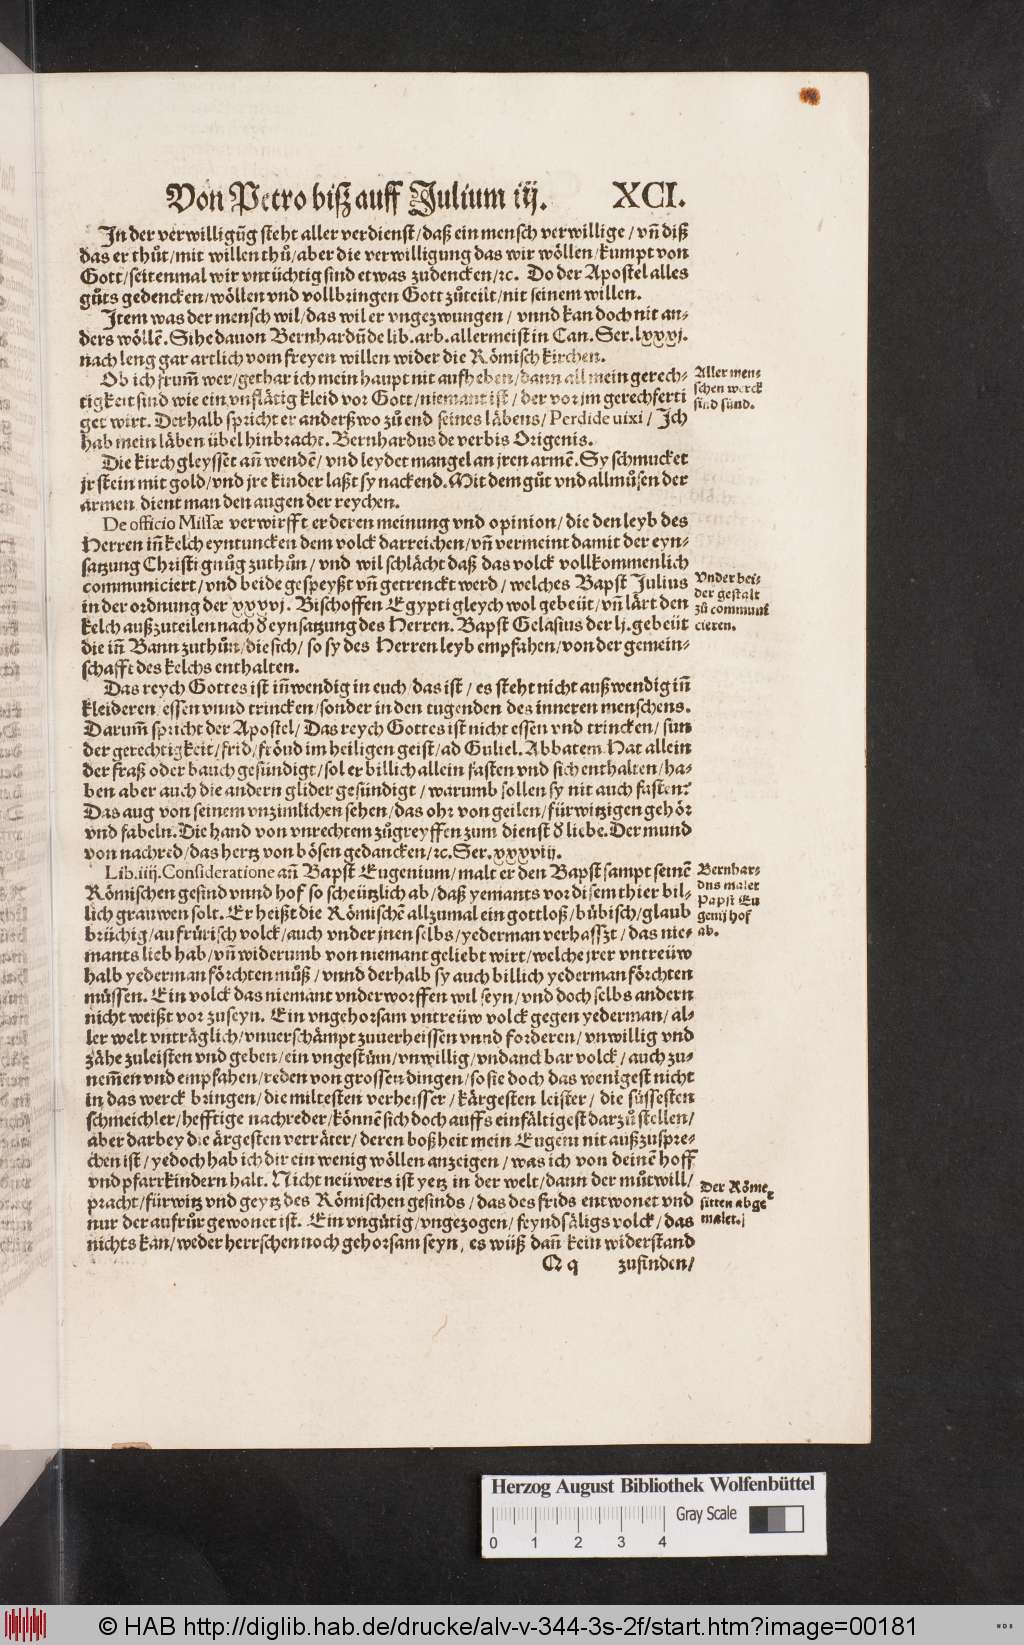 Von Petro biß auff Julium iij. XCI.
In der verwilligũg steht aller verdienst/daß ein mensch verwillige/vñ diß
das er thůt/mit willen thů/aber die verwilligung das wir wöllen/kumpt von
Gott/seitenmal wir vntüchtig sind etwas zudencken/ꝛc. Do der Apostel alles
gůts gedencken/wöllen vnd vollbringen Gott zůteilt/nit seinem willen.
Item was der mensch wil/das wil er vngezwungen/vnnd kan doch nit an-
ders wöllẽ. Sihe dauon Bernhardũ de lib. arb. allermeist in Can. Ser. lxxxj.
nach leng gar artlich vom freyen willen wider die Römisch kirchen.
Ob ich frum̃ wer/gethar ich mein haupt nit aufheben/dann all mein gerech-
tigkeit sind wie ein vnflätig kleid vor Gott/niemant ist/der vor jm gerechferti
get wirt. Derhalb spricht er anderßwo zů end seines läbens/Perdide uixi/Ich
hab mein läben übel hinbracht. Bernhardus de verbis Origenis.
Aller men-
schen werck
sind sünd.
Die kirch gleysset añ wendẽ/vnd leydet mangel an jren armẽ. Sy schmucket
jr stein mit gold/vnd jre kinder laßt sy nackend. Mit dem gůt vnd allmůsen der
armen dient man den augen der reychen.
De officio Missæ verwirfft er deren meinung vnd opinion/die den leyb des
Herren iñ kelch eyntuncken dem volck darreichen/vñ vermeint damit der eyn-
satzung Christi gnůg zuthůn/vnd wil schlächt daß das volck vollkommenlich
communiciert/vnd beide gespeyßt vñ getrenckt werd/welches Bapst Julius
in der ordnung der xxxvj. Bischoffen Egypti gleych wol gebeüt/vñ lärt den
kelch außzuteilen nach d̕ eynsatzung des Herren. Bapst Gelasius der lj. gebeüt
die iñ Bann zuthůn/die sich/so sy des Herren leyb empfahen/von der gemein-
schafft des kelchs enthalten.
Vnder bei-
der gestalt
zů communi
cieren.
Das reych Gottes ist iñwendig in euch/das ist/es steht nicht außwendig iñ
kleideren/essen vnnd trincken/sonder in den tugenden des inneren menschens.
Darum̃ spricht der Apostel/Das reych Gottes ist nicht essen vnd trincken/sun
der gerechtigkeit/frid/fröud im heiligen geist/ad Guliel. Abbatem. Hat allein
der fraß oder bauch gesündigt/sol er billich allein fasten vnd sich enthalten/ha-
ben aber auch die andern glider gesündigt/warumb sollen sy nit auch fasten?
Das aug von seinem vnzimlichen sehen/das ohr von geilen/fürwitzigen gehör
vnd fabeln. Die hand von vnrechtem zůgreyffen zum dienst d̕ liebe. Der mund
von nachred/das hertz von bösen gedancken/ꝛc. Ser. xxxviij.
Lib. iiij. Consideratione añ Bapst Eugenium/malt er den Bapst sampt seinẽ
Römischen gesind vnnd hof so scheützlich ab/daß yemants vor disem thier bil-
lich grauwen solt. Er heißt die Römischẽ allzumal ein gottloß/bübisch/glaub
brüchig/aufrůrisch volck/auch vnder jnen selbs/yederman verhasszt/das nie-
mants lieb hab/vñ widerumb von niemant geliebt wirt/welche jrer vntreüw
halb yederman förchten můß/vnnd derhalb sy auch billich yederman förchten
müssen. Ein volck das niemant vnderworffen wil seyn/vnd doch selbs andern
nicht weißt vor zuseyn. Ein vngehorsam vntreüw volck gegen yederman/al-
ler welt vnträglich/vnuerschämpt zuuerheissen vnnd forderen/vnwillig vnd
zähe zuleisten vnd geben/ein vngestüm/vnwillig/vndanckbar volck/auch zu-
nem̃en vnd empfahen/reden von grossen dingen/so sie doch das wenigest nicht
in das werck bringen/die miltesten verheisser/kärgesten leister/die süssesten
schmeichler/hefftige nachreder/könnẽ sich doch auffs einfältigest darzů stellen/
aber darbey die ärgesten verräter/deren boßheit mein Eugeni nit außzuspre-
chen ist/yedoch hab ich dir ein wenig wöllen anzeigen/was ich von deinẽ hoff
vnd pfarrkindern halt. Nicht neüwers ist yetz in der welt/dann der můtwill/
pracht/fürwitz vnd geytz des Römischen gesinds/das des frids entwonet vnd
nur der aufrůr gewonet ist. Ein vngütig/vngezogen/feyndsäligs volck/das
nichts kan/weder herrschen noch gehorsam seyn, es wüß dañ kein widerstand
Bernhar-
dus malet
Papst Eu
genij hof
ab.
Der Römer
sitten abge
malet.
Q q zufinden/
Herzog August Bibliothek Wolfenbüttel
Gray Scale
0 1 2 3 4
© HAB http://diglib.hab.de/drucke/alv-v-344-3s-2f/start.htm?image=00181